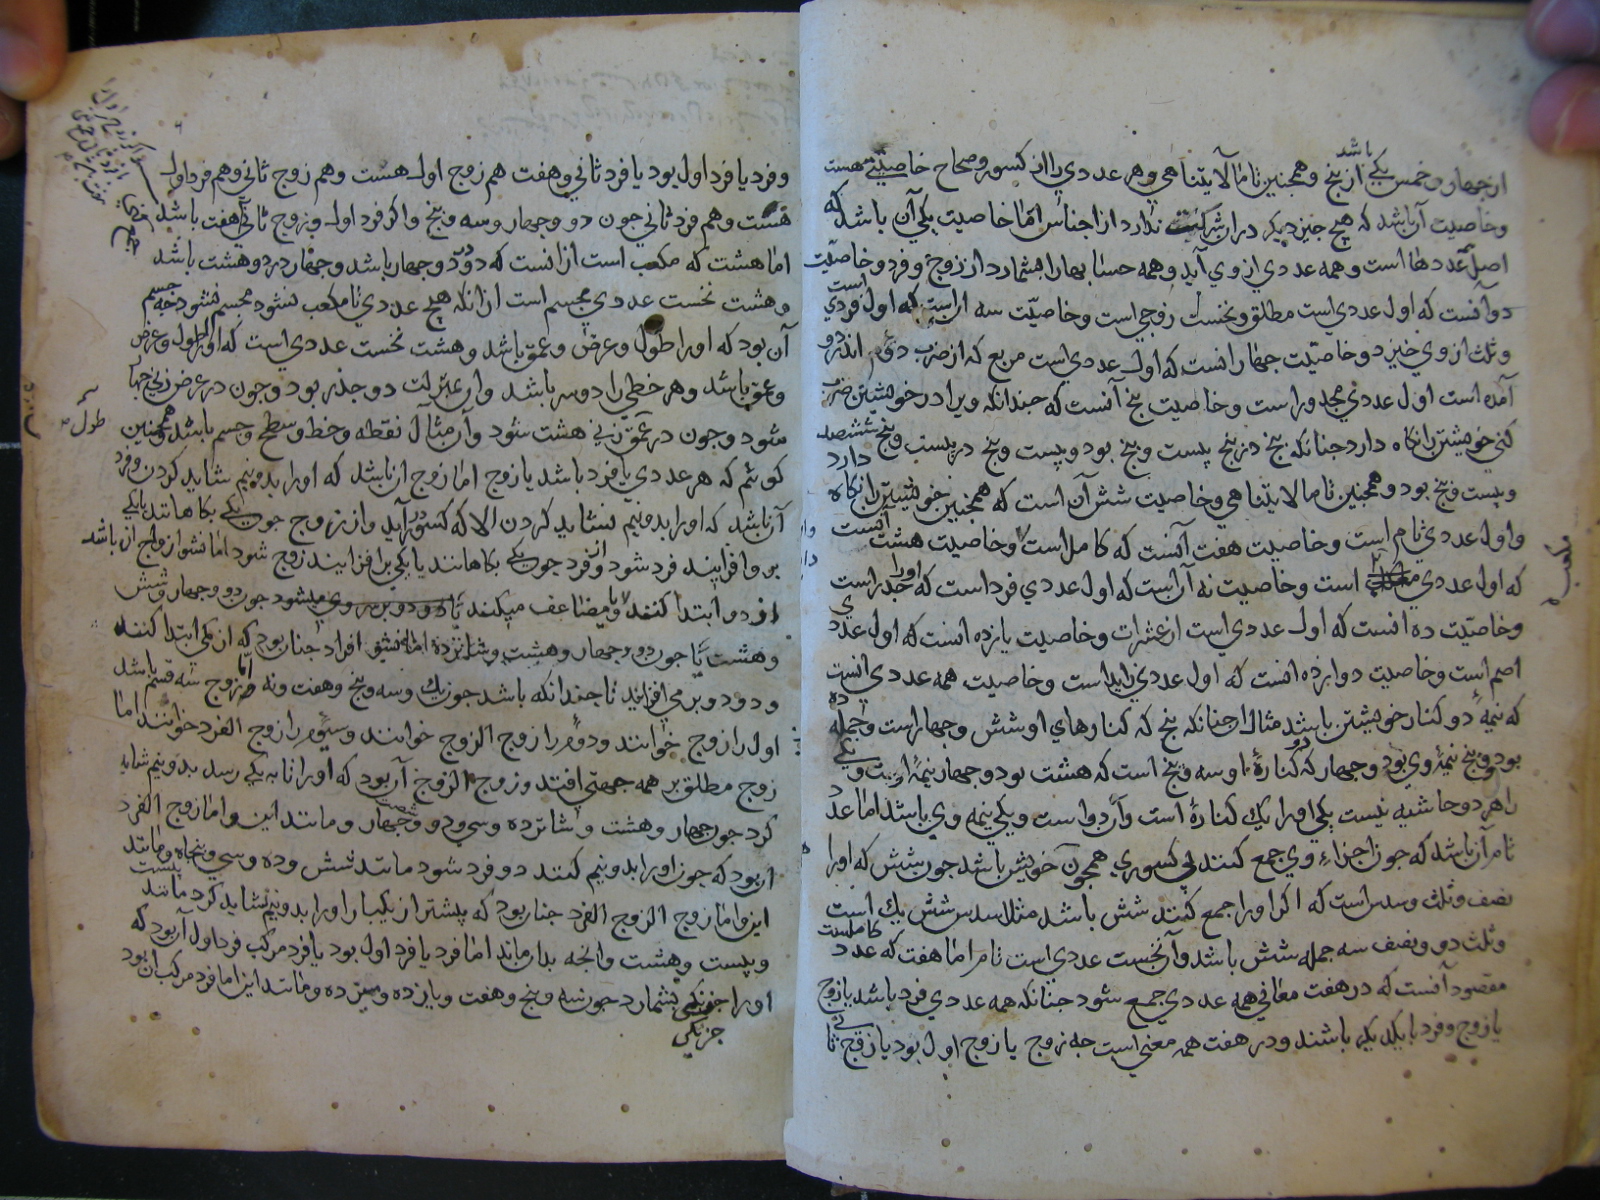 از چهار و خمس یکی باشد از پنج و همچنین تا ما لا یتناهی و هر عددی را از کسور و صحاح خاصیتی هست
و خاصیت آن باشد که هیچ چیز دیگر در آن شرکت ندارد از اجناس اما خاصیت یکی آن باشد که
اصل عددها است و همه عددی از وی آید و همه حسابها را بشمارد از زوج و فرد و خاصیت
دو آنست که اول عددی است مطلق و نخست زوجی است و خاصیت سه آن است که اول فردی است
و ثلث از وی خیزد و خاصیت چهار آنست که اول عددی است مربع که از ضرب دو اندر دو
آمده است اول عددی مجذور است و خاصیت پنج آنست که چندانکه ویرا در خویشتن ضرب
کنی خویشتن را نگاه دارد چنانکه پنج در پنج بیست و پنج بود و بیست و پنج در بیست و پنج ششصد
و بیست و پنج بود و همچنین تا ما لا یتناهی و خاصیت شش آن است که همچنین خویشتن را نگاه دارد
و اول عددی تام است و خاصیت هفت آنست که کامل است و خاصیت هشت آنست
که اول عددی مکعب است و خاصیت نه آن است که اول عددی فرد است که او را جذر است
و خاصیت ده آنست که اول عددی است از عشرات و خاصیت یازده آنست که اول عددی
اصم است و خاصیت دوازده آنست که اول عددی زاید است و خاصیت همه عددی آنست
که نیمهٔ دو کنار خویشتن باشد مثال آن چنانکه پنج که کنارهای او شش و چهار است و جمله ده
بود و پنج نیمهٔ وی بود و چهار که دو کنارهٔ او سه و پنج است که هشت بود و چهار نیمهٔ اوست و یکی
را هر دو حاشیه نیست یکی او را یک کناره است و آن دو است و یکی نیمه وی باشد اما عدد
تام آن باشد که چون اجزاء وی جمع کنند بی کسوری همچون خویش باشد چون شش که او را
نصف و ثلث و سدس است که اگر او را جمع کنند شش باشد مثلا سدس شش یک است
و ثلث دو و نصف سه جمله شش باشد و آن نخست عددی است تام اما هفت که عدد کاملست
مقصود آنست که در هفت معانی همه عددی جمع شود چنانکه همه عددی فرد باشد یا زوج
یا زوج و فرد با یکدیگر باشند و در هفت همه معنی است چه زوج یا زوج اول بود یا زوج ثانی
مکعب
و فرد یا فرد اول بود یا فرد ثانی و هفت هم زوج اول هست و هم زوج ثانی و هم فرد اول
هست و هم فرد ثانی چون دو و چهار و سه و پنج و اگر فرد اول و زوج ثانی هفت باشد
اما هشت که مکعب است از آنست که دو در دو چهار باشد و چهار در دو هشت باشد
و هشت نخست عددی مجسم است از آنکه هیچ عددی تا مکعب نشود مجسم نشود چه جسم
آن بود که او را طول و عرض و عمق باشد و هشت نخست عددی است که او را طول و عرض
و عمق باشد و هر خطی را دو سر باشد و آن بمنزلت دو جذر بود و چون در عرض زنی چهار
شود و چون در عمق زنی هشت شود و آن مثال نقطه و خط و سطح و جسم باشد و همچنین
گوئیم که هر عددی یا فرد باشد یا زوج اما زوج آن باشد که او را بدو نیم شاید کردن و فرد
آن باشد که او را بدو نیم نشاید کردن الا که کسور در آید و از زوج چون یکی بکاهاند یا یکی
برو افزایند فرد شود و از فرد چون یکی بکاهانند یا یکی بر افزایند زوج شود اما نشو ازواج آن باشد
از دو ابتدا کنند و یا مضاعف میکنند یا دو دو بر وی میشود چون دو و چهار و شش
و هشت یا چون دو و چهار و هشت و شانزده اما نشو افراد چنان بود که از یکی ابتدا کنند
و دو دو بر می افزاید تا چندانکه باشد چون یک و سه و پنج و هفت و نه اما زوج سه قسم باشد
اول را زوج خوانند و دوم را زوج الزوج خوانند و سیوم را زوج الفرد خوانند اما
زوج مطلق بر همه جمعی افتد و زوج الزوج آن بود که او را تا به یکی رسد بدو نیم شاید
کرد چون چهار و هشت و شانزده و سی و دو و شصت و چهار و مانند این و اما زوج الفرد
آن بود که چون او را بدو نیم کنند دو فرد شود مانند شش و ده و سی و پنجاه و مانند
این و اما زوج الزوج الفرد چنان بود که بیشتر از یکبار او را بدو نیم شاید کرد مانند بیست
و بیست و هشت و آنچه بدان ماند اما فرد یا فرد اول بود یا فرد مرکب فرد اول آن بود که
او را جز یکی بشمارد چون سه و پنج و هفت و یازده و سیزده و مانند این اما فرد مرکب آن بود
جز یکی
طول